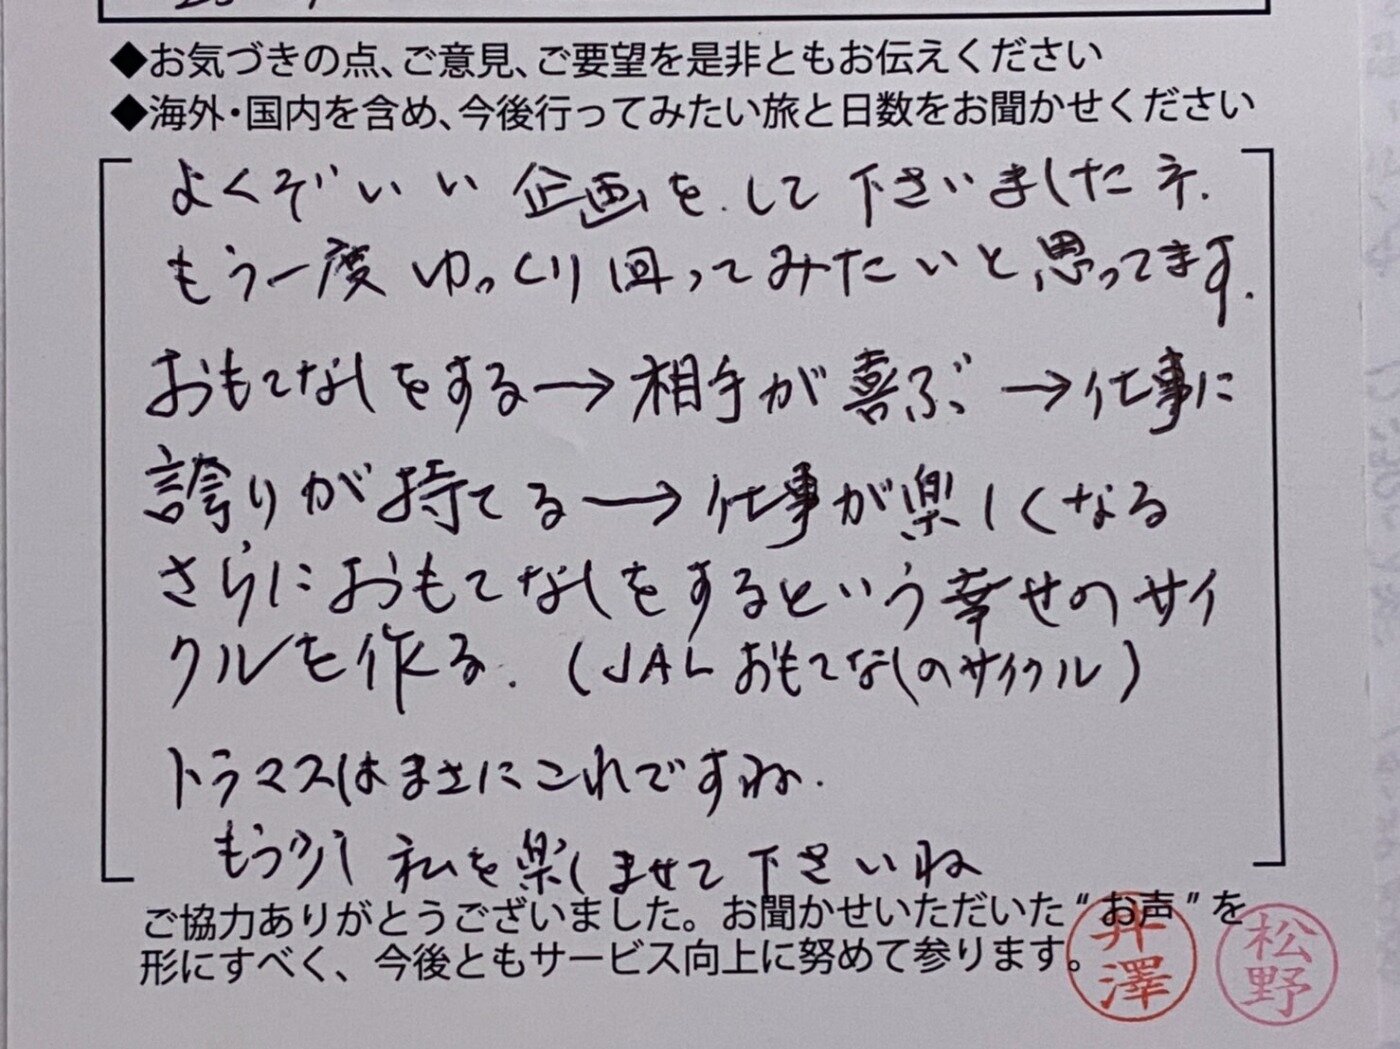 ◆お気づきの点、ご意見、ご要望を是非ともお伝えください
◆海外・国内を含め、今後行ってみたい旅と日数をお聞かせください
よくぞいい企画をして下さいましたネ.
もう一度ゆっくり回ってみたいと思ってます.
おもてなしをする→相手が喜ぶ→仕事に
誇りが持てる→仕事が楽しくなる
さらにおもてなしをするという幸せのサイ
クルを作る.(JALおもてなしのサイクル)
トラマスはまさにこれですね.
もう少し私を楽しませて下さいね
ご協力ありがとうございました。お聞かせいただいた“お声”を
形にすべく、今後ともサービス向上に努めて参ります。
井澤
松野